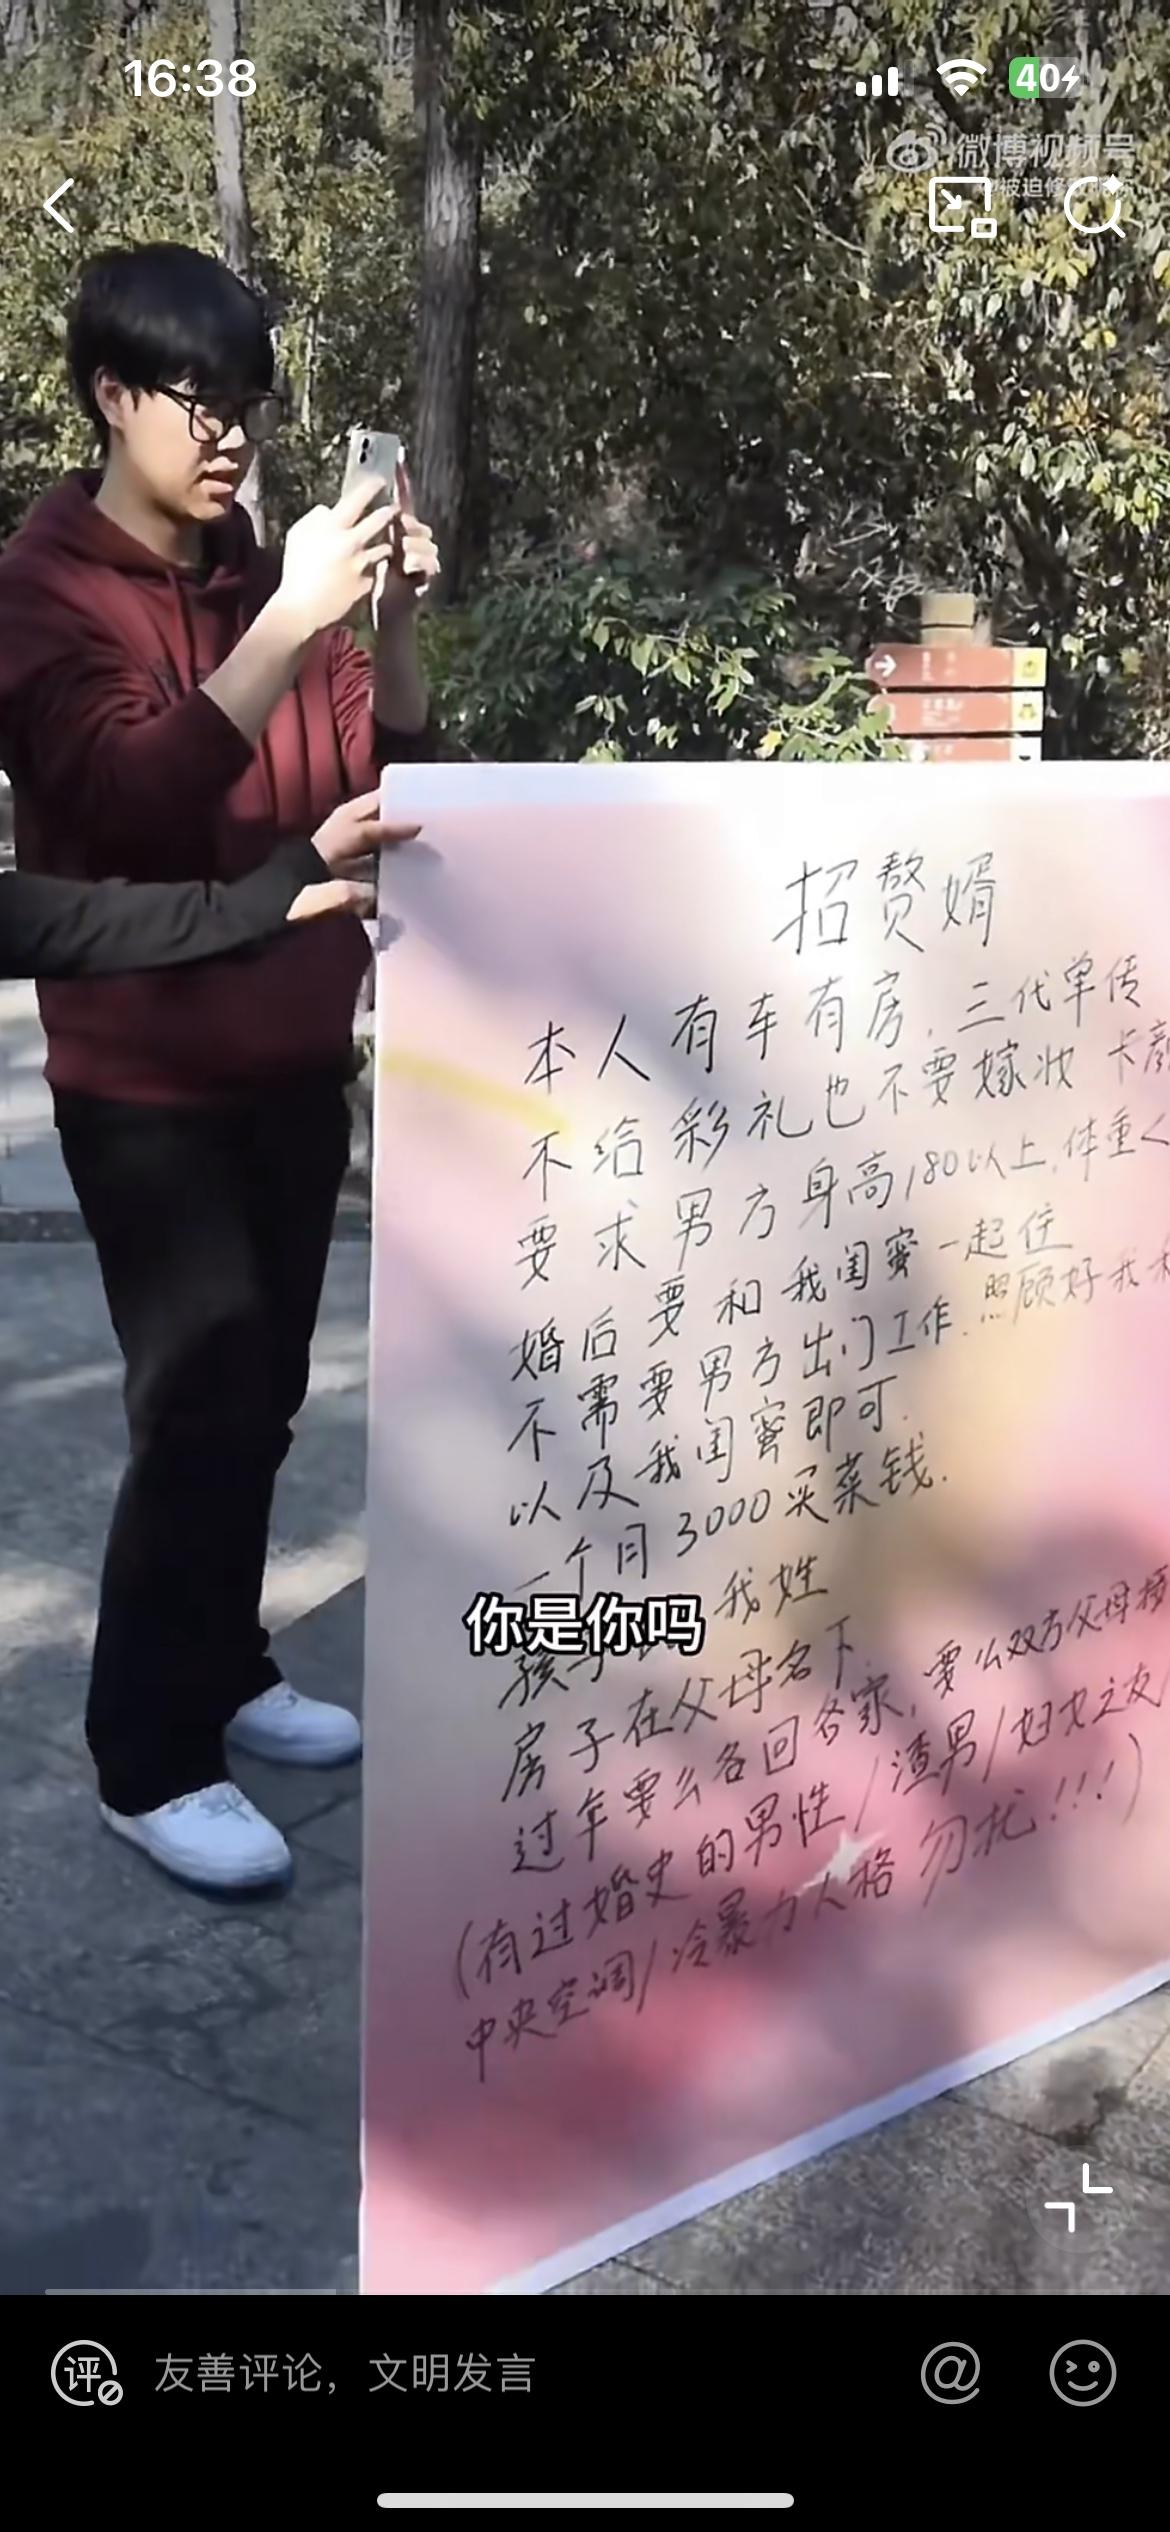 16:38
40
微博视频号
招赘婿
本人有车有房，三代单传
不给彩礼也不要嫁妆 卡颜
要求男方身高180以上，体重<
婚后要和我闺蜜一起住
不需要男方出门工作，照顾好我
以及我闺蜜即可.
一个月3000买菜钱.
你是你吗
孩子 我姓
房子在父母名下.
过年要么各回各家，要么双方父母
(有过婚史的男性/渣男/妇女之友/
中央空调/冷暴力人格 勿扰!!!)
评
友善评论，文明发言
@